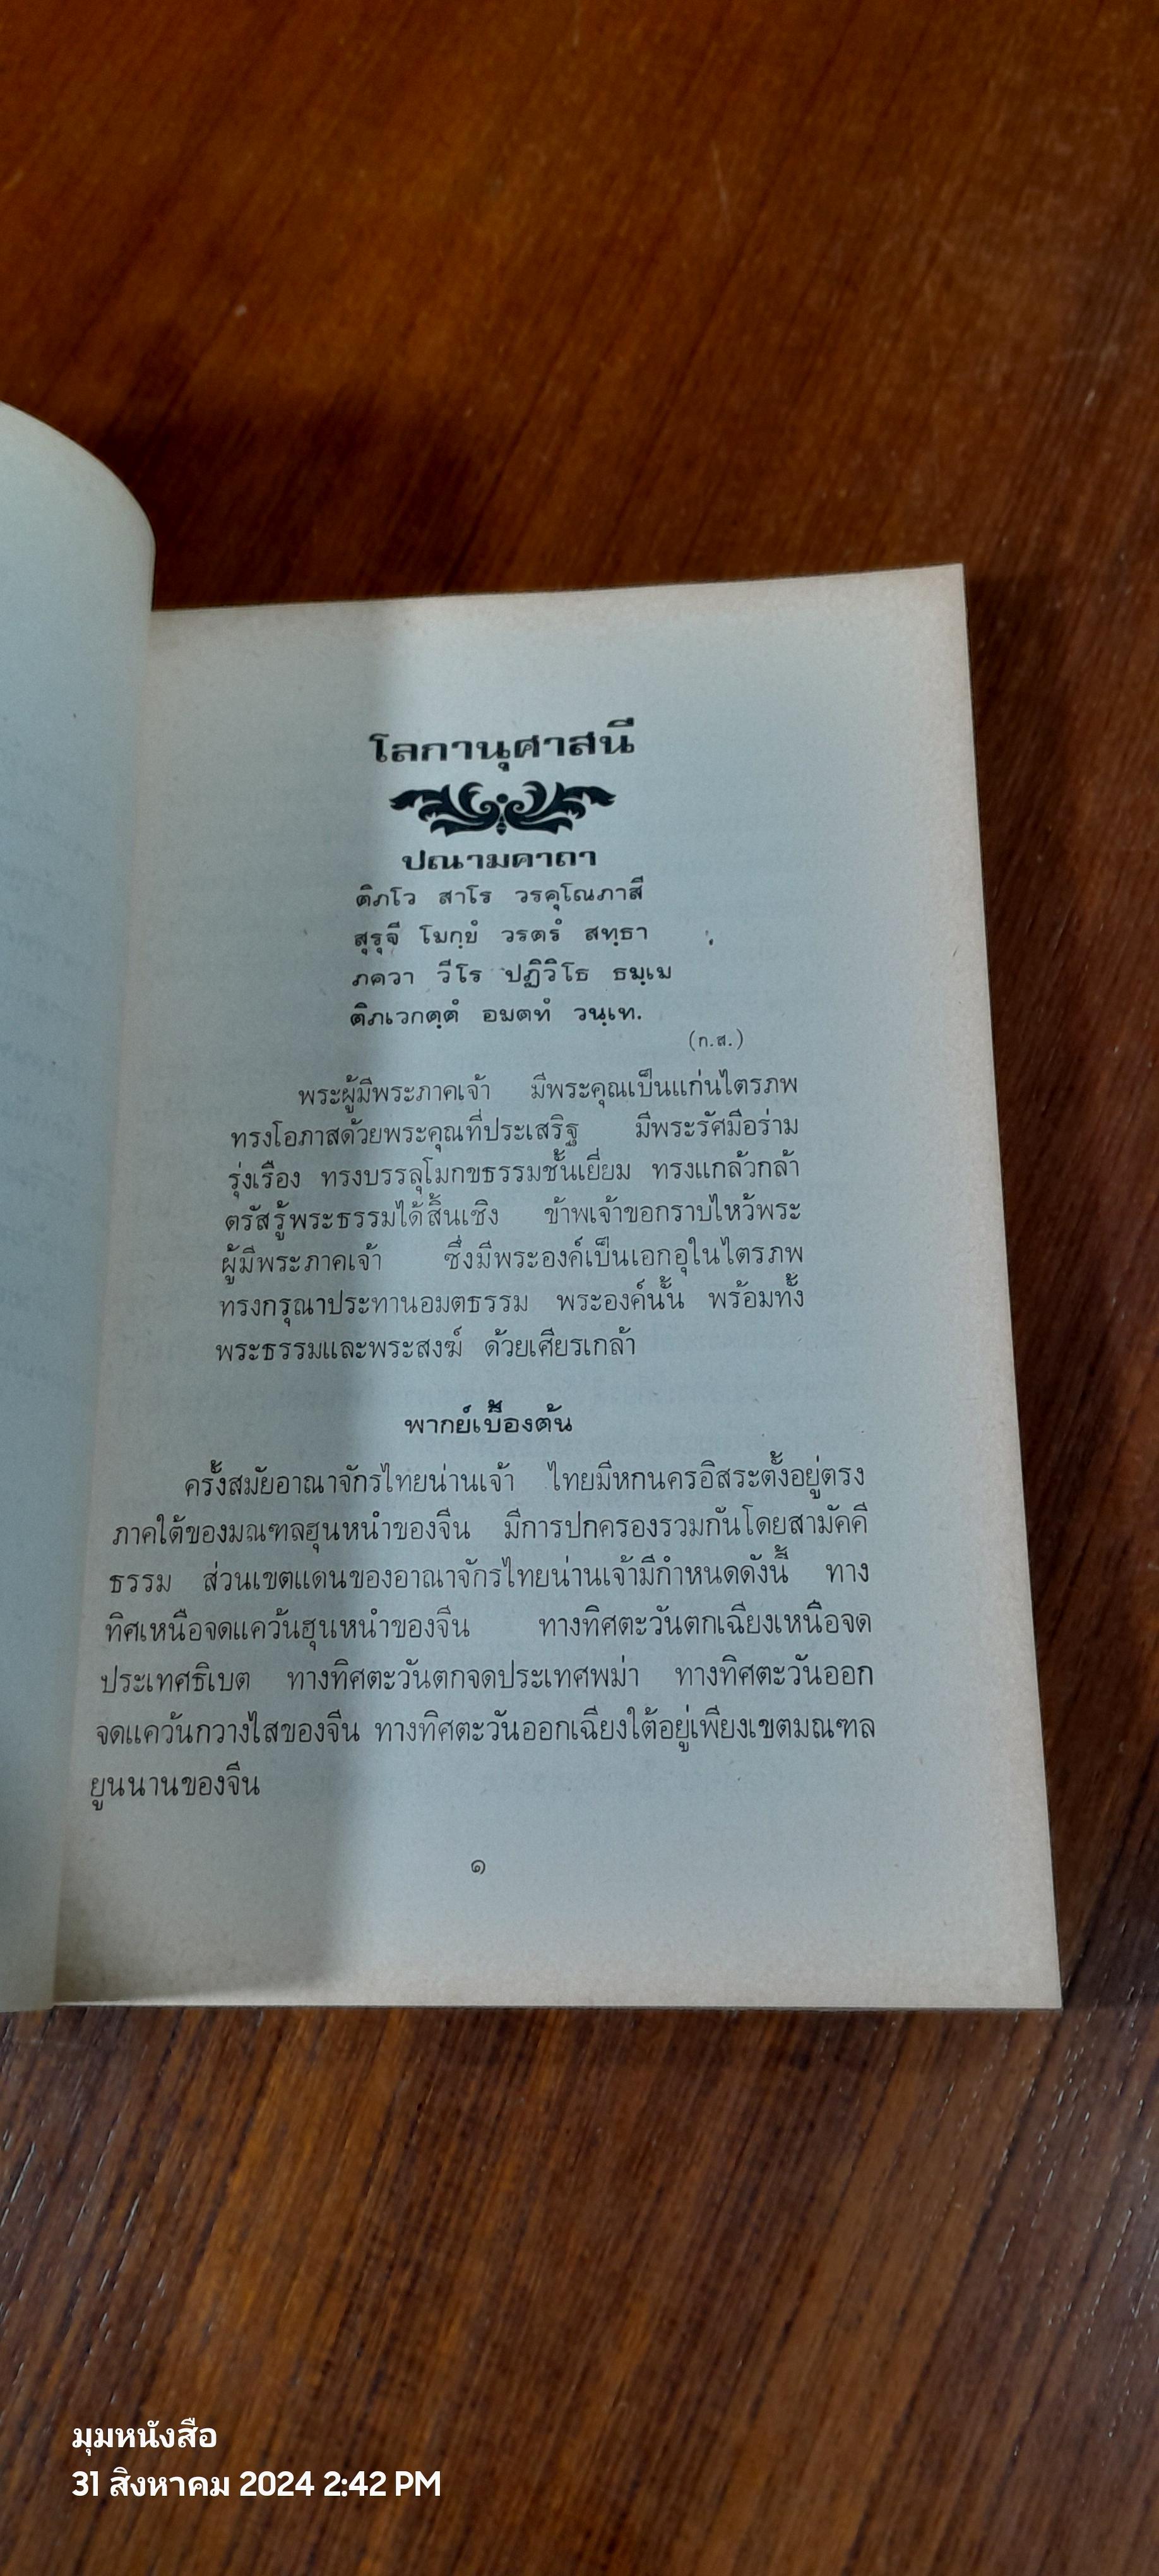 โลกานุศาสนี
ปณามคาถา
ติภโว สาโร วรคุโณภาสี
สุรุจี โมกฺขํ วรตรํ สทฺธา
ภควา วีโร ปฏิวิโธ ธมฺเม
ติภเวกตฺตํ อมตทํ วนฺเท.
(ท.ส.)
พระผู้มีพระภาคเจ้า มีพระคุณเป็นแก่นไตรภพ
ทรงโอภาสด้วยพระคุณที่ประเสริฐ มีพระรัศมีอร่าม
รุ่งเรือง ทรงบรรลุโมกขธรรมชั้นเยี่ยม ทรงแกล้วกล้า
ตรัสรู้พระธรรมได้สิ้นเชิง ข้าพเจ้าขอกราบไหว้พระ
ผู้มีพระภาคเจ้า ซึ่งมีพระองค์เป็นเอกอุในไตรภพ
ทรงกรุณาประทานอมตธรรม พระองค์นั้น พร้อมทั้ง
พระธรรมและพระสงฆ์ ด้วยเศียรเกล้า
พากย์เบื้องต้น
ครั้งสมัยอาณาจักรไทยน่านเจ้า ไทยมีหกนครอิสระตั้งอยู่ตรง
ภาคใต้ของมณฑลฮุนหนำของจีน มีการปกครองรวมกันโดยสามัคคี
ธรรม ส่วนเขตแดนของอาณาจักรไทยน่านเจ้ามีกำหนดดังนี้ ทาง
ทิศเหนือจดแคว้นฮุนหนำของจีน ทางทิศตะวันตกเฉียงเหนือจด
ประเทศธิเบต ทางทิศตะวันตกจดประเทศพม่า ทางทิศตะวันออก
จดแคว้นกวางไสของจีน ทางทิศตะวันออกเฉียงใต้อยู่เพียงเขตมณฑล
ยูนนานของจีน
๑
มุมหนังสือ
31 สิงหาคม 2024 2:42 PM